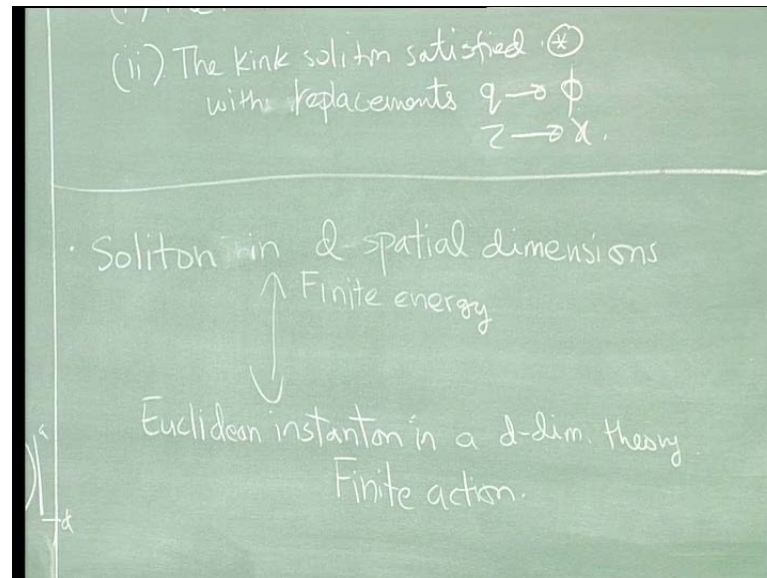 (ii) The kink soliton satisfied ⊛
with replacements q → φ
τ → x.
· Soliton in d spatial dimensions
Finite energy
Euclidean instanton in a d-dim. theory.
Finite action.